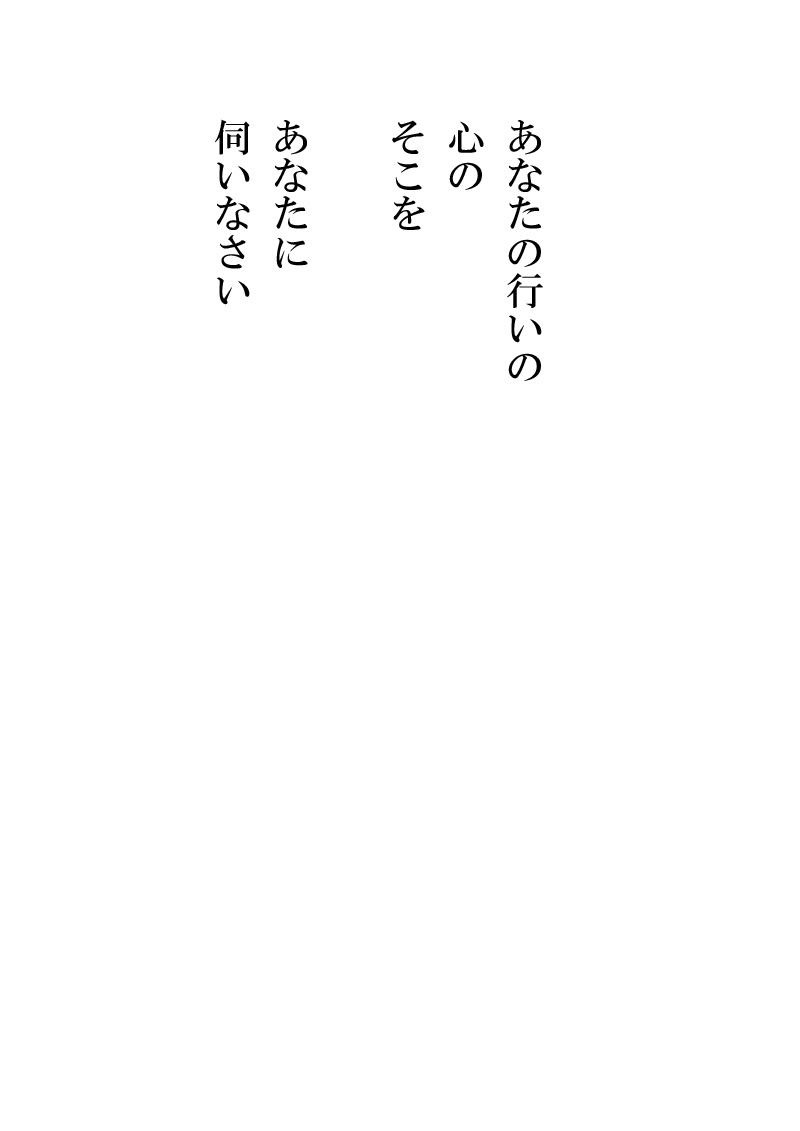 あなたの行いの
心の
そこを
あなたに
伺いなさい